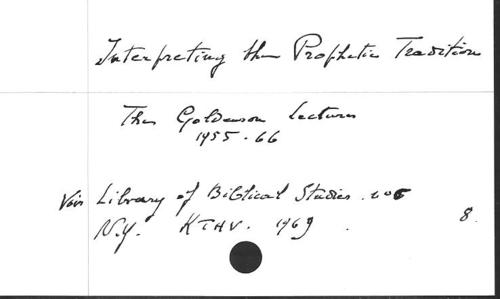 Interpreting the Prophetic Tradition
The Goldenson Lectures
1955-66
Voir Library of Biblical Studies.
N.Y. KTAV. 1969. 8.